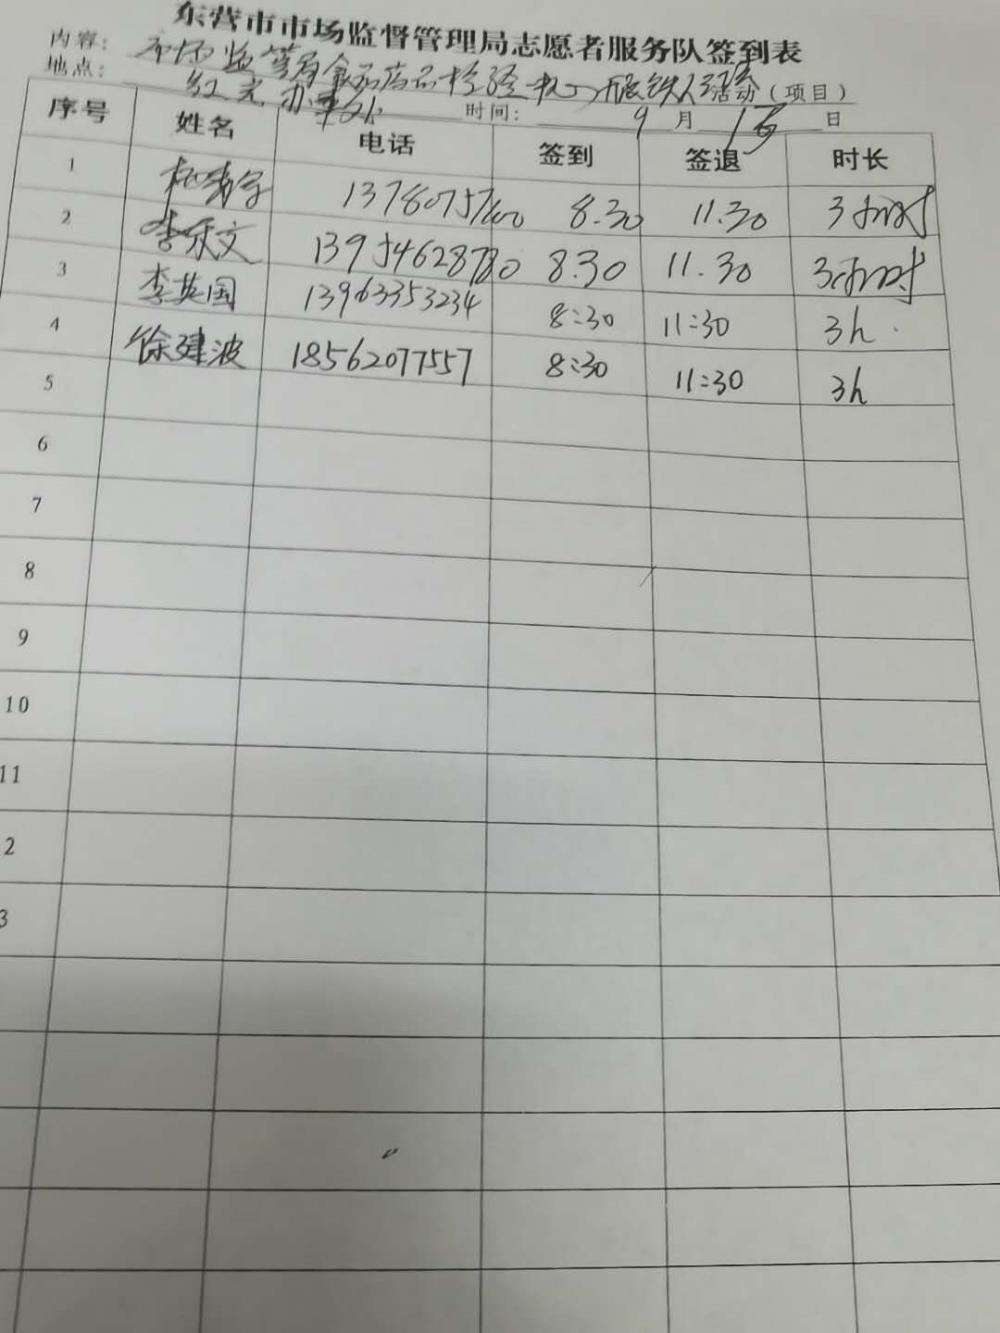 东营市市场监督管理局志愿者服务队签到表
内容：市场监管局食品药品检验中心 活动（项目）
地点：红光办事处 时间：9月15日
序号 姓名 电话 签到 签退 时长
1 8.30 11.30 3小时
2 李乐文 13954628780 8.30 11.30 3小时
3 李英国 13963353234 8:30 11:30 3h
4 徐建波 18562077557 8:30 11:30 3h
5
6
7
8
9
10
11
2
3